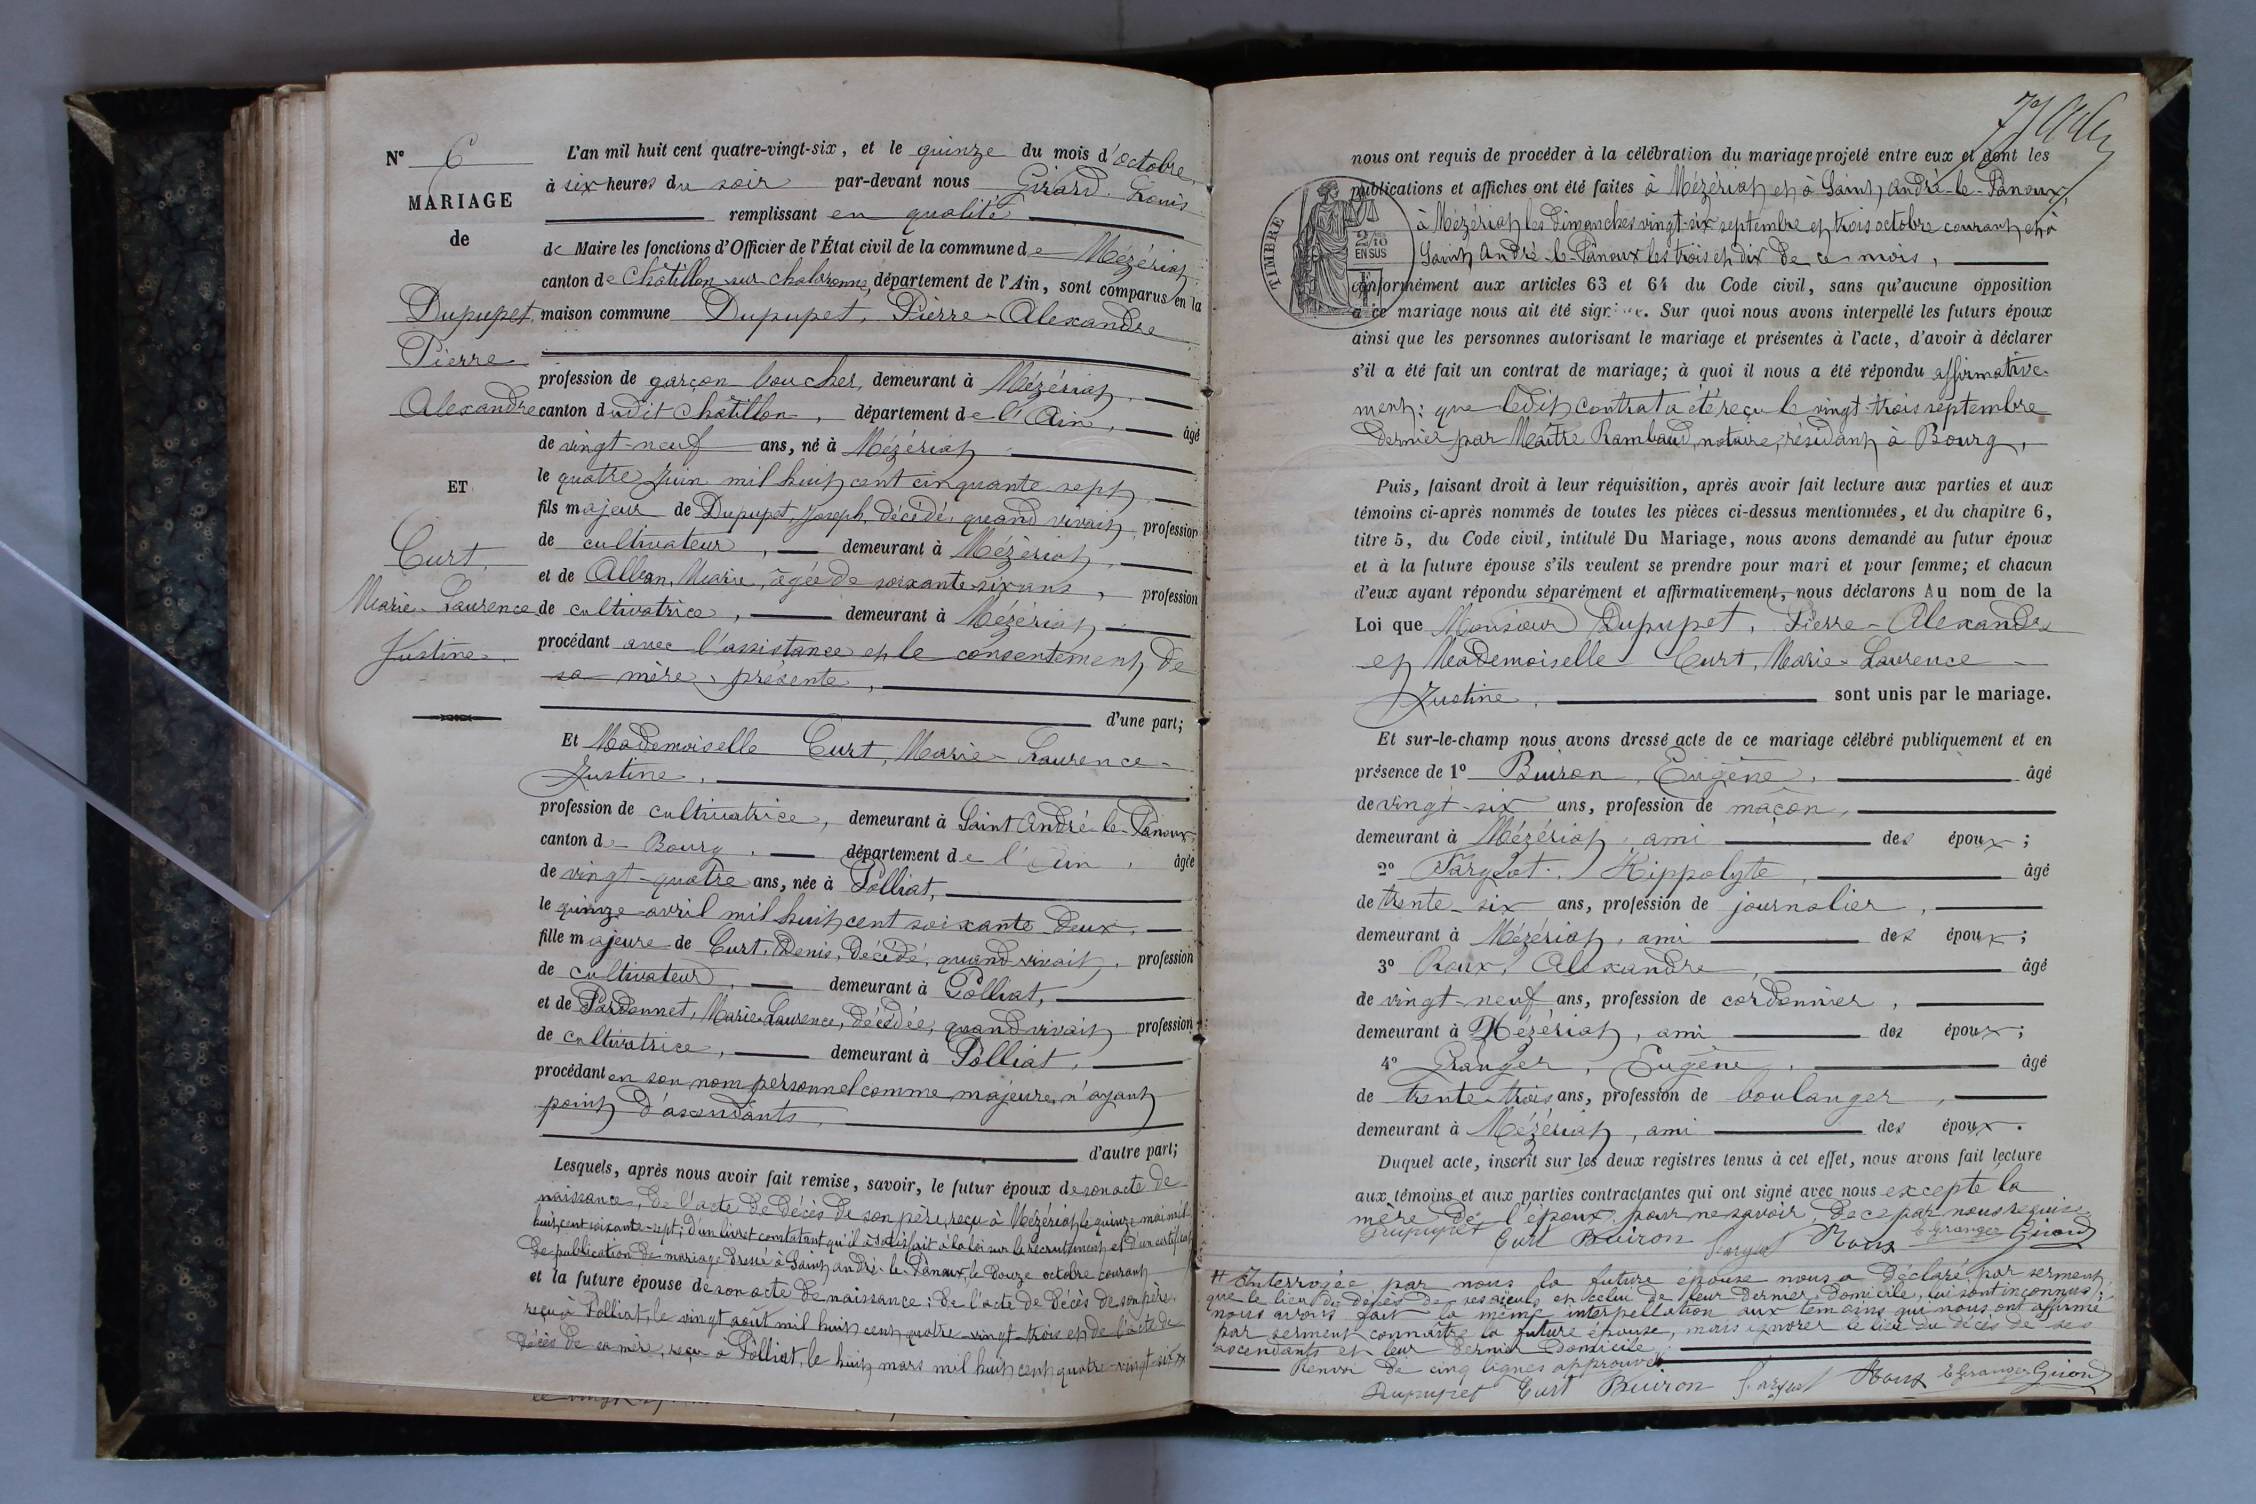 N° 6
MARIAGE
de
Dupupet
Pierre
Alexandre
ET
Curt,
Marie-Laurence
Justine.
L'an mil huit cent quatre-vingt-six, et le quinze du mois d'octobre,
à six heures du soir par-devant nous Girard Louis
remplissant en qualité
de Maire les fonctions d'Officier de l'État civil de la commune de Mézériat
canton de Châtillon sur chalaronne, département de l'Ain, sont comparus en la
maison commune Dupupet, Pierre-Alexandre
profession de garçon boucher, demeurant à Mézériat,
canton dudit Châtillon, département de l'Ain, âgé
de vingt-neuf ans, né à Mézériat
le quatre Juin mil huit cent cinquante-sept,
fils majeur de Dupupet, Joseph, décédé, quand vivait, profession
de cultivateur, demeurant à Mézériat,
et de Alban, Marie, âgée de soixante-six ans, profession
de cultivatrice, demeurant à Mézériat,
procédant avec l'assistance et le consentement de
sa mère, présente,
d'une part;
Et Mademoiselle Curt, Marie-Laurence-
Justine,
profession de cultivatrice, demeurant à Saint André-le-Panoux,
canton de Bourg, département de l'Ain, âgée
de vingt-quatre ans, née à Polliat,
le quinze avril mil huit cent soixante deux,
fille majeure de Curt, Denis, décédé, quand vivait, profession
de cultivateur, demeurant à Polliat,
et de Pardonnet, Marie-Laurence, décédée, quand vivait profession
de cultivatrice, demeurant à Polliat,
procédant en son nom personnel comme majeure, n'ayant
point d'ascendants,
d'autre part;
Lesquels, après nous avoir fait remise, savoir, le futur époux de son acte de
naissance, de l'acte de décès de son père, reçu à Mézériat, le quinze mai mil
huit cent soixante-sept; d'un livret constatant qu'il a satisfait à la loi sur le recrutement et d'un certificat
de publication de mariage dressé à Saint andré-le-Panoux, le douze octobre courant
et la future épouse de son acte de naissance; de l'acte de décès de son père,
reçu à Polliat, le vingt août mil huit cent quatre-vingt-trois et de l'acte de
décès de sa mère, reçu à Polliat, le huit mars mil huit cent quatre-vingt-six
nous ont requis de procéder à la célébration du mariage projeté entre eux et dont les
publications et affiches ont été faites à Mézériat et à Saint andré-le-Panoux,
à Mézériat les dimanches vingt-six septembre et trois octobre courant et à
Saint André-le-Panoux les trois et dix de ce mois,
TIMBRE
2/10
EN SUS
conformément aux articles 63 et 64 du Code civil, sans qu'aucune opposition
à ce mariage nous ait été signifiée. Sur quoi nous avons interpellé les futurs époux
ainsi que les personnes autorisant le mariage et présentes à l'acte, d'avoir à déclarer
s'il a été fait un contrat de mariage; à quoi il nous a été répondu affirmative-
ment: que ledit contrat a été reçu le vingt-trois septembre
dernier par Maître Rambaud, notaire, résidant à Bourg,
Puis, faisant droit à leur réquisition, après avoir fait lecture aux parties et aux
témoins ci-après nommés de toutes les pièces ci-dessus mentionnées, et du chapitre 6,
titre 5, du Code civil, intitulé Du Mariage, nous avons demandé au futur époux
et à la future épouse s'ils veulent se prendre pour mari et pour femme; et chacun
d'eux ayant répondu séparément et affirmativement, nous déclarons Au nom de la
Loi que Monsieur Dupupet, Pierre-Alexandre
et Mademoiselle Curt, Marie-Laurence-
Justine, sont unis par le mariage.
Et sur-le-champ nous avons dressé acte de ce mariage célébré publiquement et en
présence de 1° Buiron, Eugène, âgé
de vingt-six ans, profession de maçon,
demeurant à Mézériat, ami des époux;
2° Hippolyte, âgé
de trente-six ans, profession de journalier,
demeurant à Mézériat, ami des époux;
3° Roux, Alexandre, âgé
de vingt-neuf ans, profession de cordonnier,
demeurant à Mézériat, ami des époux;
4° Granger, Eugène, âgé
de trente-trois ans, profession de boulanger,
demeurant à Mézériat, ami des époux.
Duquel acte, inscrit sur les deux registres tenus à cet effet, nous avons fait lecture
aux témoins et aux parties contractantes qui ont signé avec nous excepté la
mère de l'époux, pour ne savoir, de ce par nous requise.
Dupupet Curt Buiron Roux E Granger Girard
Interrogée par nous la future épouse nous a déclaré par serment,
que le lieu du décès de ses aïeuls et celui de leur dernier domicile, lui sont inconnus;
nous avons fait la même interpellation aux témoins qui nous ont affirmé
par serment connaître la future épouse, mais ignorer le lieu du décès de ses
ascendants et leur dernier domicile.
Renvoi de cinq lignes approuvé.
Dupupet Curt Buiron Roux E Granger Girard